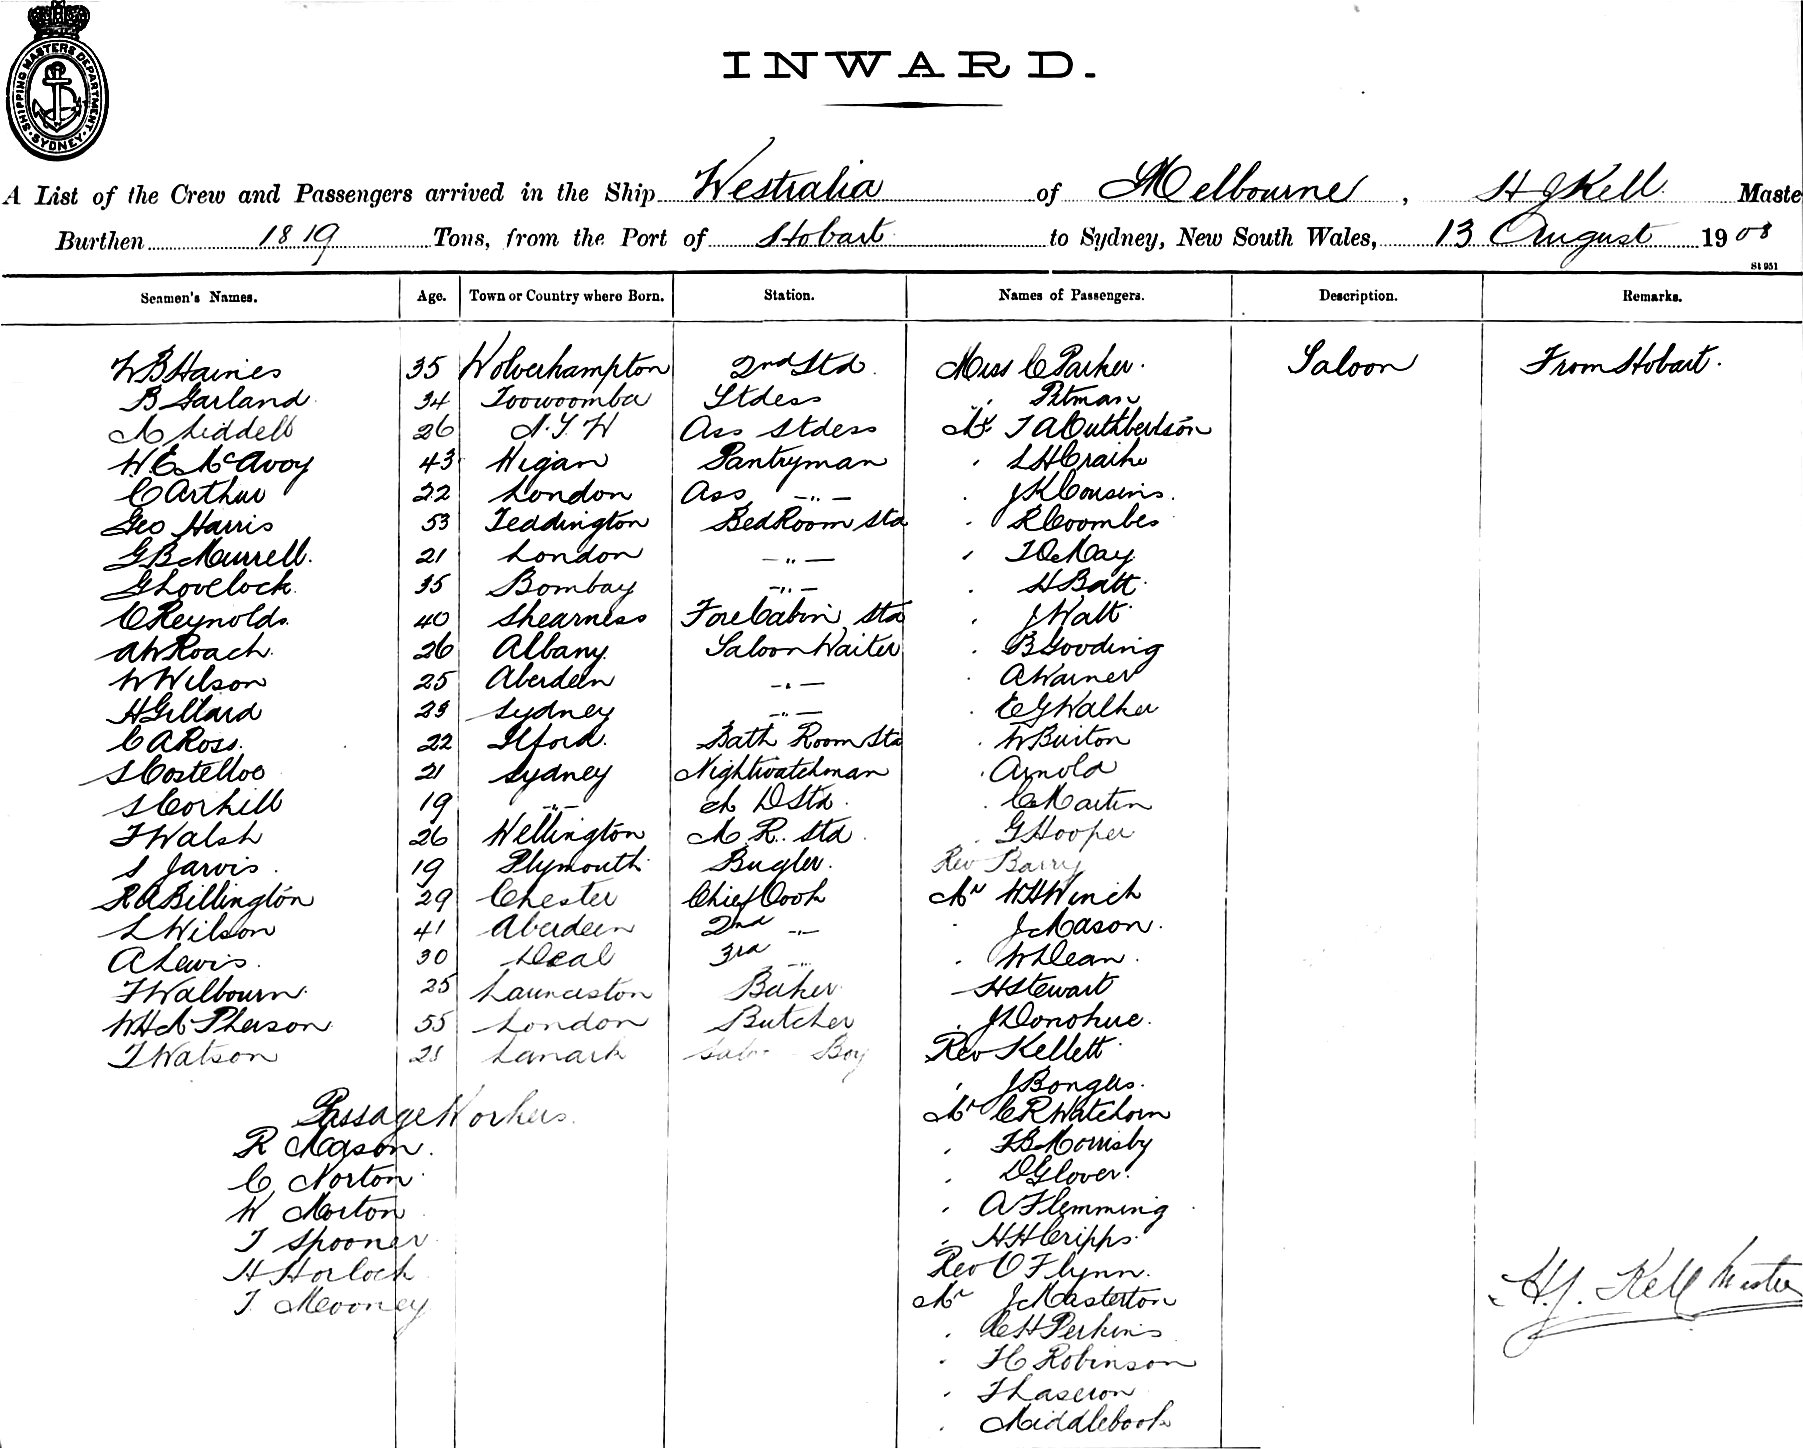 SHIPPING MASTERS DEPARTMENT · SYDNEY ·
INWARD.
A List of the Crew and Passengers arrived in the Ship Westralia of Melbourne, H J Kell Maste
Burthen 1819 Tons, from the Port of Hobart to Sydney, New South Wales, 13 August 1908
St 951
Seamen's Names. Age. Town or Country where Born. Station. Names of Passengers. Description. Remarks.
W B Haines 35 Wolverhampton 2nd Std. Miss C Parker. Saloon From Hobart.
B Garland 34 Toowoomba Stdess " Pitman
A Liddell 26 N.S.W Ass Stdess Mr T A Cuthbertson
W. C. McAvoy 43 Wigan Pantryman " S H Craike
C Arthur 22 London Ass —"— " J K Cousins.
Geo Harris 53 Teddington Bed Room Std " R Coombes
G B Murrell. 21 London —"— " T O May
G Lovelock. 35 Bombay —"— " H Batt
C Reynolds. 40 Shearness Fore Cabin Std " J Watt
A W Roach. 26 Albany Saloon Waiter " B Gooding
W Wilson 25 Aberdeen —"— " A Warner
H Gillard 23 Sydney —"— " E G Walker
C A Ross. 22 Ilford. Bath Room Std " W Burton
S Costelloe 21 Sydney Nightwatchman " Arnold
S Corkill 19 —"— D Std. " C Martin
F Walsh 26 Wellington M. R. Std. " G Hooper
S Jarvis. 19 Plymouth Bugler. Rev Barry
R A Billington 29 Chester Chief Cook Mr W H Winch
L Wilson 41 Aberdeen 2nd —"— " J Mason.
A Lewis. 30 Deal 3rd —"— " W Dean.
F Walbourn. 25 Launceston Baker " H Stewart
W H McPherson 55 London Butcher " J Donohue.
T Watson 21 Lanark Boy Rev Kellett
" J Bonges.
Passage Workers. Mr C R Watchorn
R Mason. " F B Morrisby
C Norton " D Glover.
W Morton " A Flemming
T Spooner " H H Cripps.
H Horlock Rev O Flynn.
T. Mooney Mr J Masterton
" C H Perkins
" H C Robinson
" T Laseron
" Middlebook
H. J. Kell Master